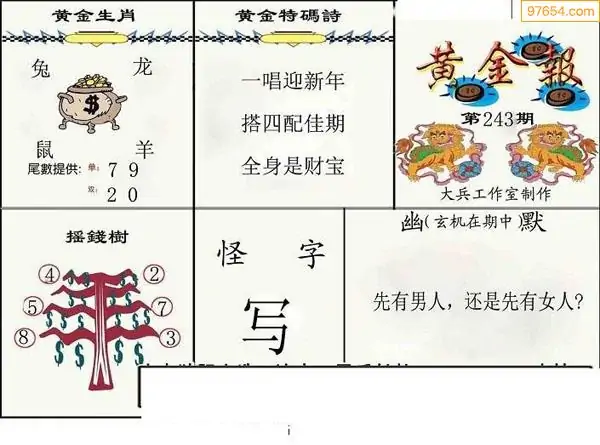 97654.com
黄金生肖
兔 龙
鼠 羊
尾數提供: 单: 7 9
双: 2 0
黄金特碼詩
一唱迎新年
搭四配佳期
全身是财宝
黄金報
第243期
大兵工作室制作
摇錢樹
④ ②
⑤ ⑦
⑧ ③
怪 字
写
幽(玄机在期中)默
先有男人，还是先有女人?
i